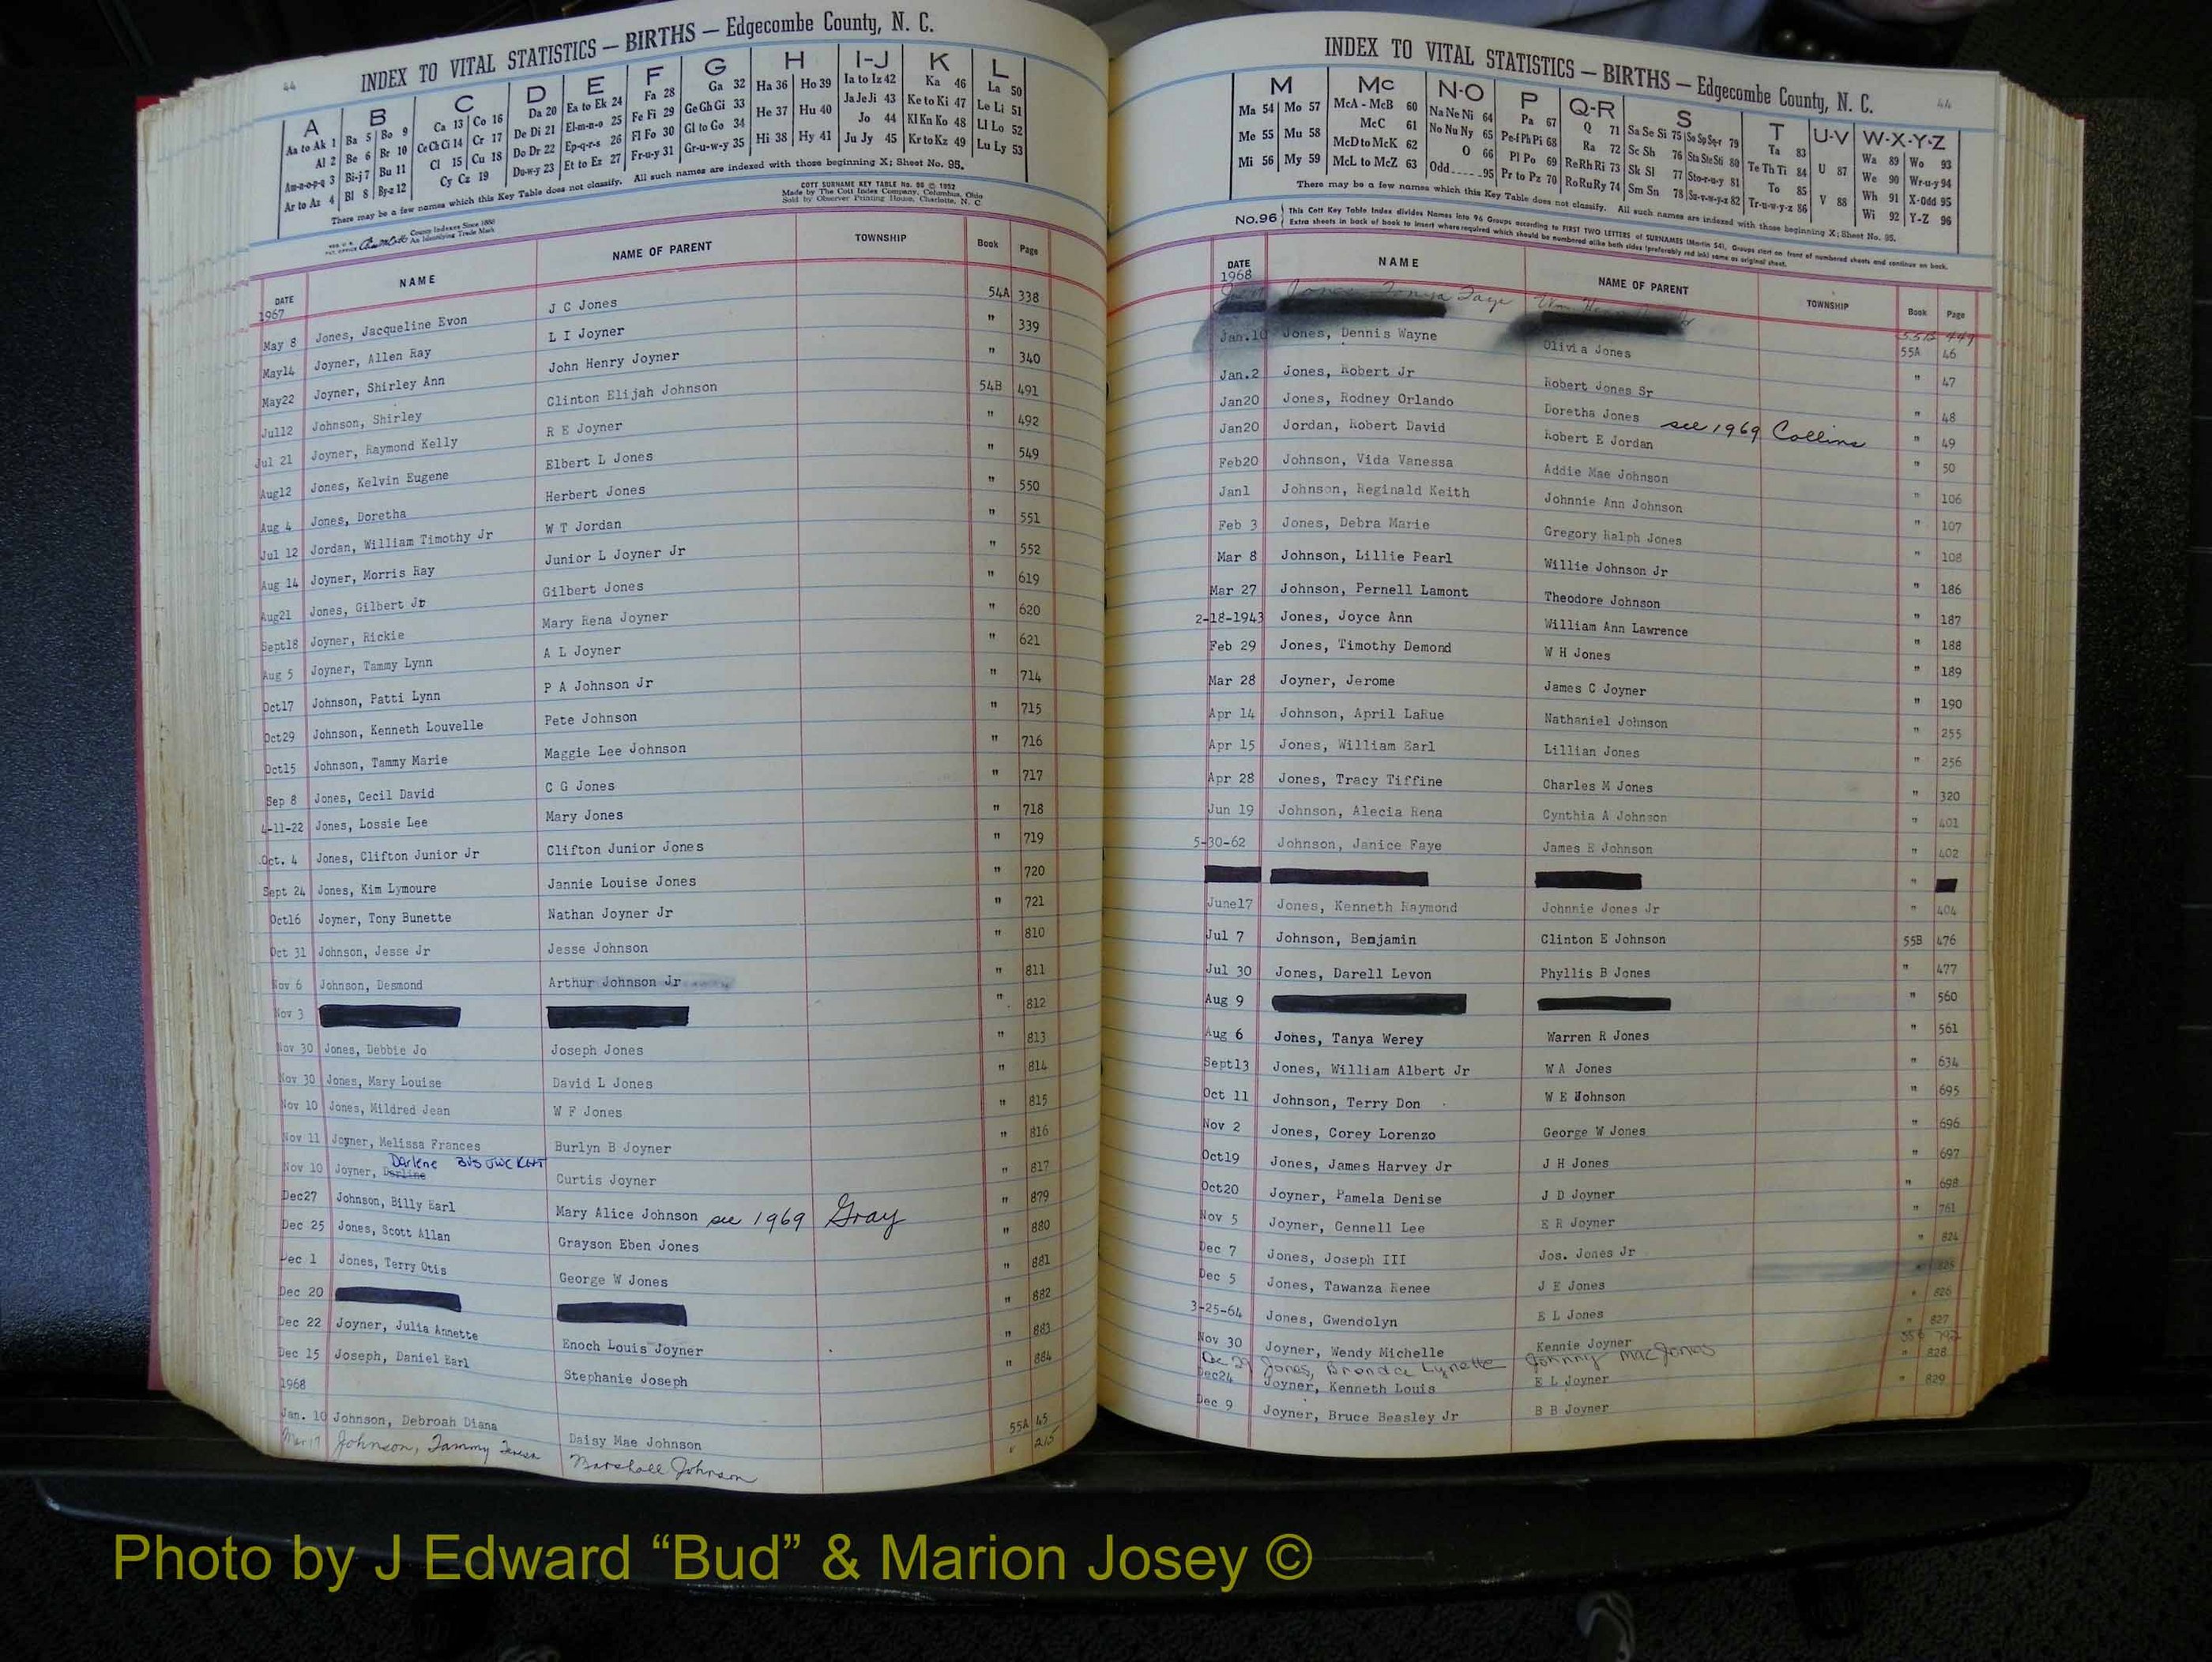 44
INDEX TO VITAL STATISTICS — BIRTHS — Edgecombe County, N. C.
A B C D E F G H I-J K L
Aa to Ak 1 Ba 5 Bo 9 Ca 13 Co 16 Da 20 Ea to Ek 24 Fa 28 Ga 32 Ha 36 Ho 39 Ia to Iz 42 Ka 46 La 50
Al 2 Be 6 Br 10 Ce Ch Ci 14 Cr 17 De Di 21 El-m-n-o 25 Fe Fi 29 Ge Gh Gi 33 He 37 Hu 40 Ja Je Ji 43 Ke to Ki 47 Le Li 51
Am-n-o-p-q 3 Bi-j 7 Bu 11 Cl 15 Cu 18 Do Dr 22 Ep-q-r-s 26 Fl Fo 30 Gl to Go 34 Hi 38 Hy 41 Jo 44 Kl Kn Ko 48 Ll Lo 52
Ar to Az 4 Bl 8 By-z 12 Cy Cz 19 Du-w-y 23 Et to Ez 27 Fr-u-y 31 Gr-u-w-y 35 Ju Jy 45 Kr to Kz 49 Lu Ly 53
There may be a few names which this Key Table does not classify. All such names are indexed with those beginning X; Sheet No. 95.
COTT SURNAME KEY TABLE No. 96 © 1952
Made by The Cott Index Company, Columbus, Ohio
Sold by Observer Printing House, Charlotte, N. C.
County Indexes Since 1888
An Identifying Trade Mark
DATE NAME NAME OF PARENT TOWNSHIP Book Page
1967
May 8 Jones, Jacqueline Evon J C Jones 54A 338
May14 Joyner, Allen Ray L I Joyner " 339
May22 Joyner, Shirley Ann John Henry Joyner " 340
Jul12 Johnson, Shirley Clinton Elijah Johnson 54B 491
Jul 21 Joyner, Raymond Kelly R E Joyner " 492
Aug12 Jones, Kelvin Eugene Elbert L Jones " 549
Aug 4 Jones, Doretha Herbert Jones " 550
Jul 12 Jordan, William Timothy Jr W T Jordan " 551
Aug 14 Joyner, Morris Ray Junior L Joyner Jr " 552
Aug21 Jones, Gilbert Jr Gilbert Jones " 619
Sept18 Joyner, Rickie Mary Rena Joyner " 620
Aug 5 Joyner, Tammy Lynn A L Joyner " 621
Oct17 Johnson, Patti Lynn P A Johnson Jr " 714
Oct29 Johnson, Kenneth Louvelle Pete Johnson " 715
Oct15 Johnson, Tammy Marie Maggie Lee Johnson " 716
Sep 8 Jones, Cecil David C G Jones " 717
4-11-22 Jones, Lossie Lee Mary Jones " 718
Oct. 4 Jones, Clifton Junior Jr Clifton Junior Jones " 719
Sept 24 Jones, Kim Lymoure Jannie Louise Jones " 720
Oct16 Joyner, Tony Bunette Nathan Joyner Jr " 721
Oct 31 Johnson, Jesse Jr Jesse Johnson " 810
Nov 6 Johnson, Desmond Arthur Johnson Jr " 811
Nov 3 " 812
Nov 30 Jones, Debbie Jo Joseph Jones " 813
Nov 30 Jones, Mary Louise David L Jones " 814
Nov 10 Jones, Mildred Jean W F Jones " 815
Nov 11 Joyner, Melissa Frances Burlyn B Joyner " 816
Darlene
Nov 10 Joyner, Darline Curtis Joyner " 817
Dec27 Johnson, Billy Earl Mary Alice Johnson see 1969 Gray " 879
Dec 25 Jones, Scott Allan Grayson Eben Jones " 880
Dec 1 Jones, Terry Otis George W Jones " 881
Dec 20 " 882
Dec 22 Joyner, Julia Annette Enoch Louis Joyner " 883
Dec 15 Joseph, Daniel Earl Stephanie Joseph " 884
1968
Jan. 10 Johnson, Debroah Diana Daisy Mae Johnson 55A 45
Mar 17 Johnson, Tammy Teresa Marshall Johnson " 215
INDEX TO VITAL STATISTICS — BIRTHS — Edgecombe County, N. C.
44
M Mc N-O P Q-R S T U-V W-X-Y-Z
Ma 54 Mo 57 McA - McB 60 Na Ne Ni 64 Pa 67 Q 71 Sa Se Si 75 So Sp Sq-r 79 Ta 83 Wa 89 Wo 93
Me 55 Mu 58 McC 61 No Nu Ny 65 Pe-f Ph Pi 68 Ra 72 Sc Sh 76 Sta Ste Sti 80 Te Th Ti 84 U 87 We 90 Wr-u-y 94
Mi 56 My 59 McD to McK 62 O 66 Pl Po 69 Re Rh Ri 73 Sk Sl 77 Sto-r-u-y 81 To 85 V 88 Wh 91 X-Odd 95
McL to McZ 63 Odd 95 Pr to Pz 70 Ro Ru Ry 74 Sm Sn 78 Su-v-w-y-z 82 Tr-u-w-y-z 86 Wi 92 Y-Z 96
There may be a few names which this Key Table does not classify. All such names are indexed with those beginning X; Sheet No. 95.
No.96 This Cott Key Table Index divides Names into 96 Groups according to FIRST TWO LETTERS of SURNAMES (Martin 54). Groups start on front of numbered sheets and continue on back.
Extra sheets in back of book to insert where required which should be numbered alike both sides (preferably red ink) same as original sheet.
DATE NAME NAME OF PARENT TOWNSHIP Book Page
1968
Jones Tonya Faye 55B 447
Jan.10 Jones, Dennis Wayne Olivia Jones 55A 46
Jan.2 Jones, Robert Jr Robert Jones Sr " 47
Jan20 Jones, Rodney Orlando Doretha Jones see 1969 Collins " 48
Jan20 Jordan, Robert David Robert E Jordan " 49
Feb20 Johnson, Vida Vanessa Addie Mae Johnson " 50
Jan1 Johnson, Reginald Keith Johnnie Ann Johnson " 106
Feb 3 Jones, Debra Marie Gregory Ralph Jones " 107
Mar 8 Johnson, Lillie Pearl Willie Johnson Jr " 108
Mar 27 Johnson, Pernell Lamont Theodore Johnson " 186
2-18-1943 Jones, Joyce Ann William Ann Lawrence " 187
Feb 29 Jones, Timothy Demond W H Jones " 188
Mar 28 Joyner, Jerome James C Joyner " 189
Apr 14 Johnson, April LaRue Nathaniel Johnson " 190
Apr 15 Jones, William Earl Lillian Jones " 255
Apr 28 Jones, Tracy Tiffine Charles M Jones " 256
Jun 19 Johnson, Alecia Rena Cynthia A Johnson " 320
5-30-62 Johnson, Janice Faye James E Johnson " 401
" 402
June17 Jones, Kenneth Raymond Johnnie Jones Jr " 404
Jul 7 Johnson, Benjamin Clinton E Johnson 55B 476
Jul 30 Jones, Darell Levon Phyllis B Jones " 477
Aug 9 " 560
Aug 6 Jones, Tanya Werey Warren R Jones " 561
Sept13 Jones, William Albert Jr W A Jones " 634
Oct 11 Johnson, Terry Don W E Johnson " 695
Nov 2 Jones, Corey Lorenzo George W Jones " 696
Oct19 Jones, James Harvey Jr J H Jones " 697
Oct20 Joyner, Pamela Denise J D Joyner " 698
Nov 5 Joyner, Gennell Lee E R Joyner " 761
Dec 7 Jones, Joseph III Jos. Jones Jr " 824
Dec 5 Jones, Tawanza Renee J E Jones " 825
3-25-64 Jones, Gwendolyn E L Jones " 826
Nov 30 Joyner, Wendy Michelle Kennie Joyner " 827
Dec 29 Jones, Bronda Lynette Johnny Mac Jones 55B 792
Dec24 Joyner, Kenneth Louis E L Joyner " 828
Dec 9 Joyner, Bruce Beasley Jr B B Joyner " 829
Photo by J Edward “Bud” & Marion Josey ©